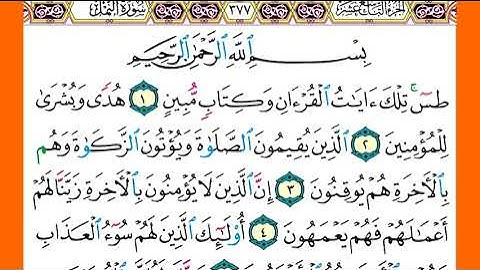 سورة النمل ٣٧٧ الجزء التاسع عشر
بِسْمِ اللَّهِ الرَّحْمَٰنِ الرَّحِيمِ
طسٓ ۚ تِلْكَ ءَايَٰتُ الْقُرْءَانِ وَكِتَابٍ مُّبِينٍ ١ هُدًى وَبُشْرَىٰ
لِلْمُؤْمِنِينَ ٢ الَّذِينَ يُقِيمُونَ الصَّلَوٰةَ وَيُؤْتُونَ الزَّكَوٰةَ وَهُم
بِالْأَخِرَةِ هُمْ يُوقِنُونَ ٣ إِنَّ الَّذِينَ لَا يُؤْمِنُونَ بِالْأَخِرَةِ زَيَّنَّا لَهُمْ
أَعْمَٰلَهُمْ فَهُمْ يَعْمَهُونَ ٤ أُو۟لَٰٓئِكَ الَّذِينَ لَهُمْ سُوٓءُ الْعَذَابِ